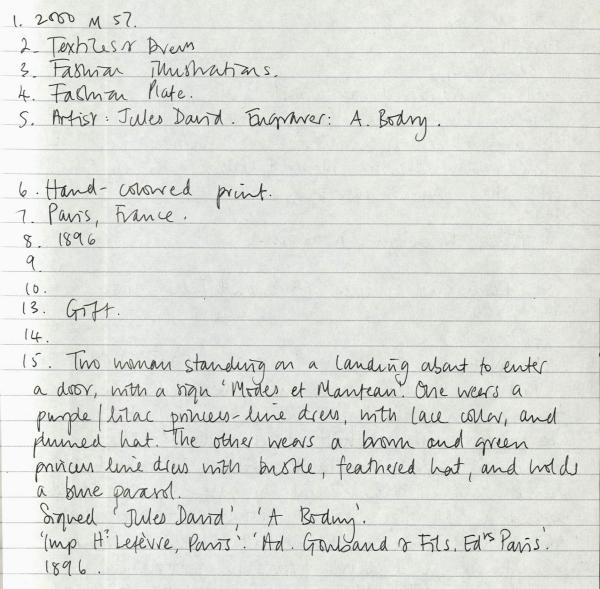 1. 2000 M 57.
2. Textiles & Dress
3. Fashion illustrations.
4. Fashion Plate.
5. Artist: Jules David. Engraver: A. Bodny.
6. Hand-coloured print.
7. Paris, France.
8. 1896
9.
10.
13. Gift.
14.
15. Two woman standing on a landing about to enter
a door, with a sign 'Modes et Manteau'. One wears a
purple/lilac princess-line dress, with lace collar, and
plumed hat. The other wears a brown and green
princess line dress with bustle, feathered hat, and holds
a blue parasol.
Signed 'Jules David', 'A Bodny'.
'Imp Ht Lefèvre, Paris'. 'Ad. Goubaud & Fils. Edrs Paris'.
1896.